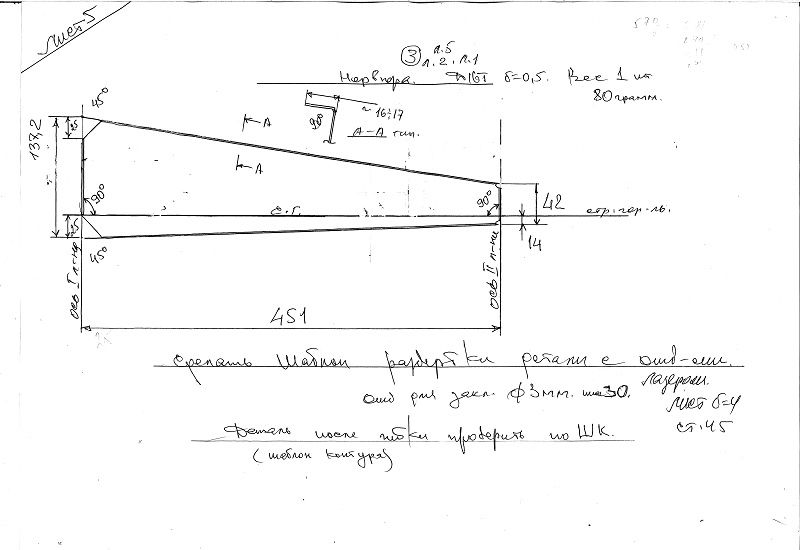 лист 5
③ л.5
л.2. л.1
Нервюра. Д16Т δ=0,5. Вес 1 шт
80 грамм.
45°
А
~16÷17
90°
А-А тип.
137,2
25
А
90°
90°
42
с.г.
стр. гор-ль.
25
45°
14
ось I л-на
ось II л-на
451
Сделать шаблон развёртки детали с отв-ями.
лазером.
отв для закл. ф3мм. шаг 30.
лист δ=4
ст. 45
Деталь после гибки проверить по ШК.
(шаблон контура)